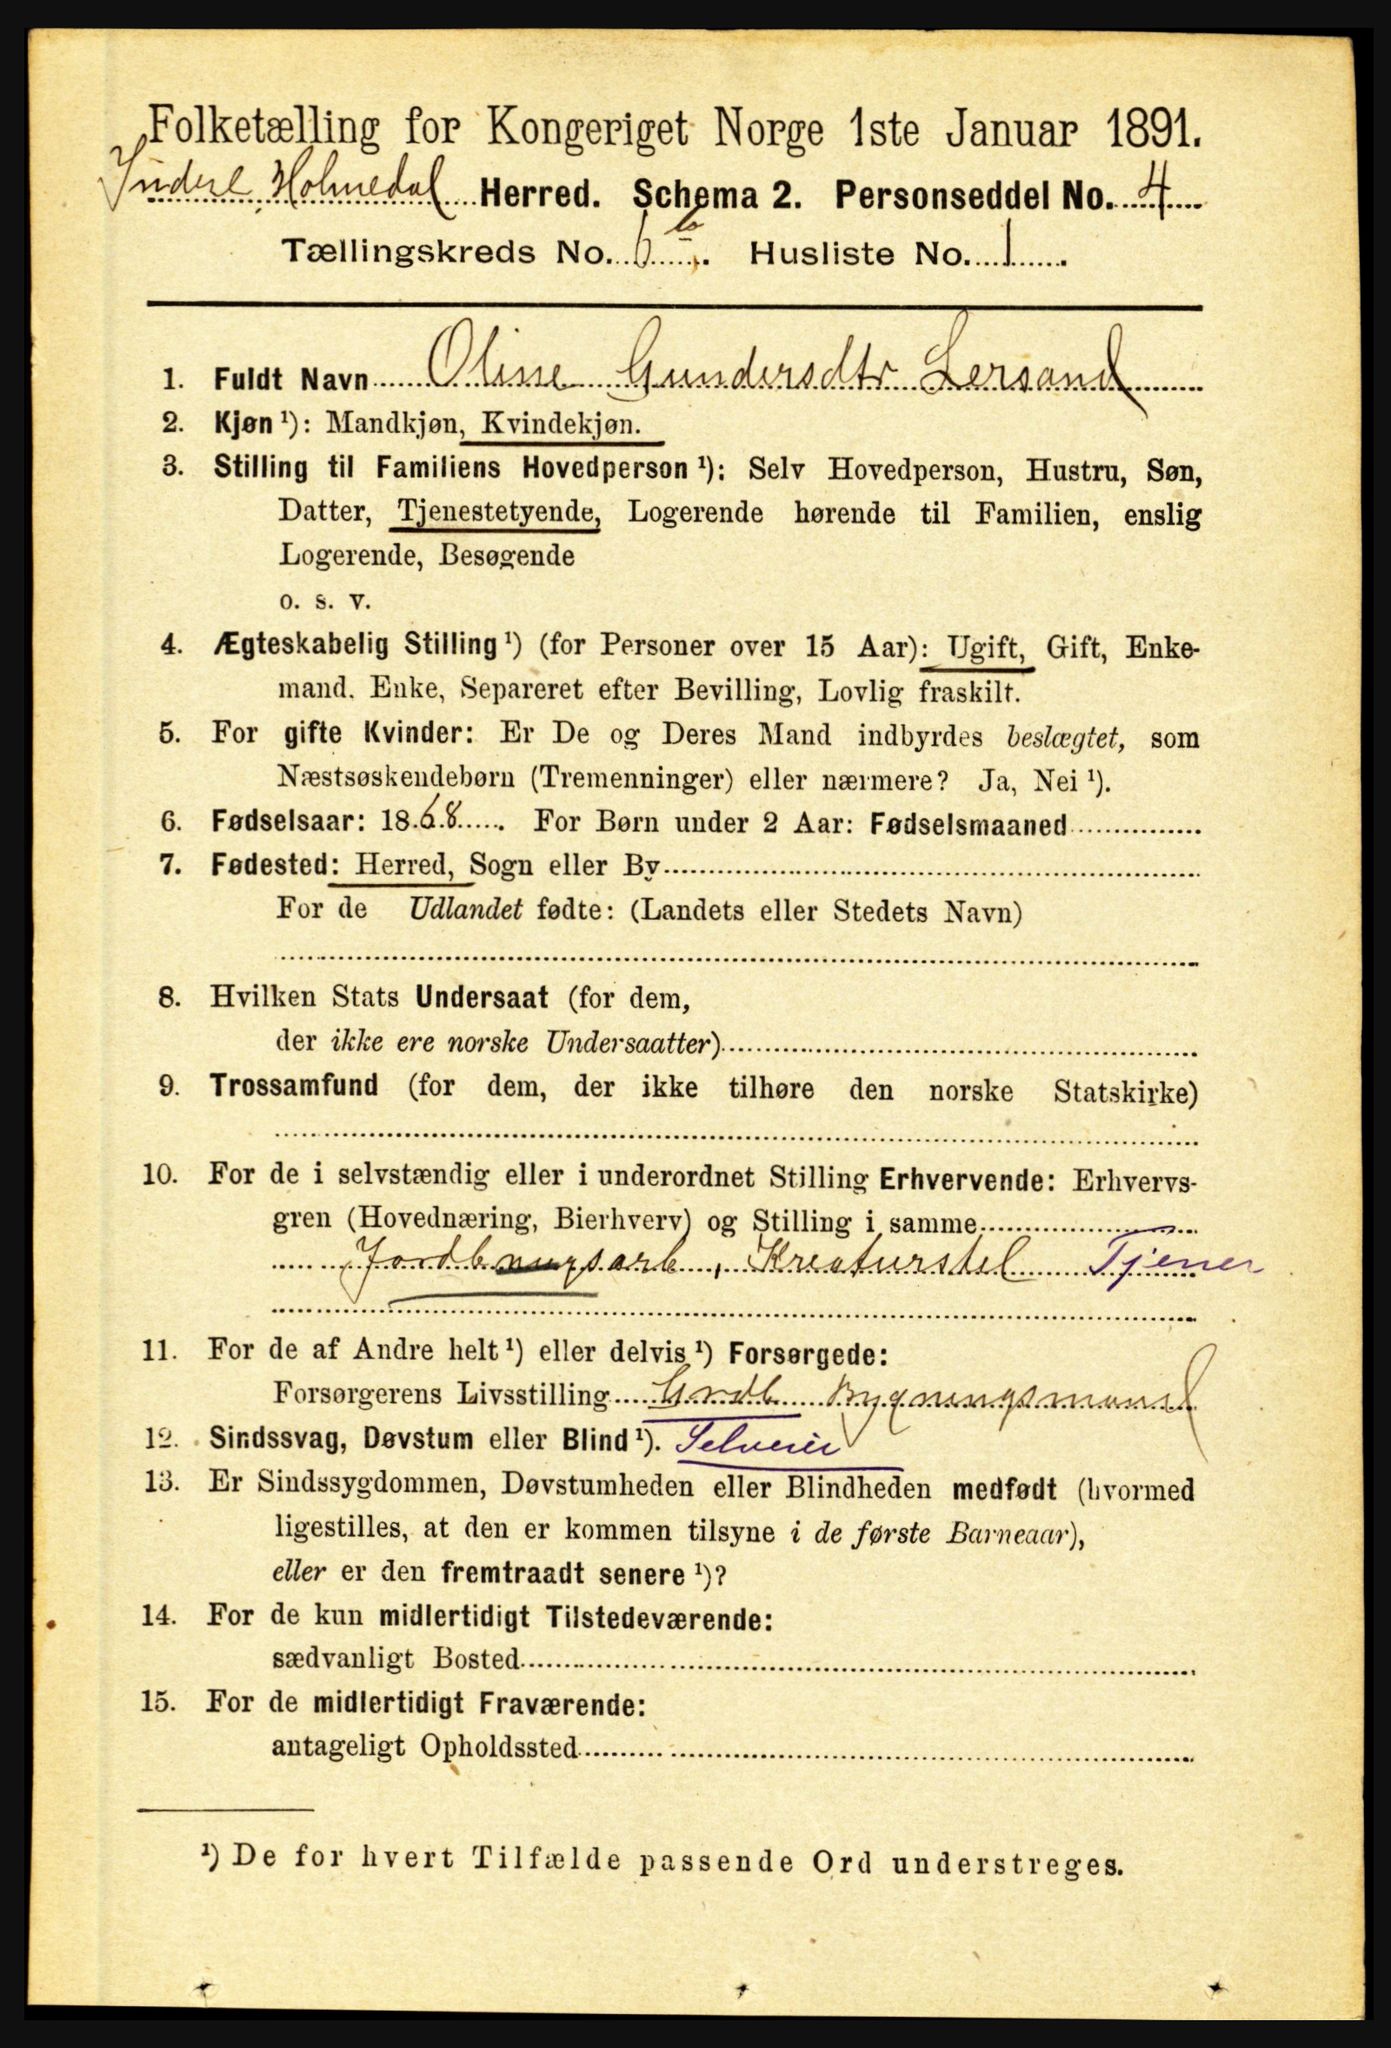 Folketælling for Kongeriget Norge 1ste Januar 1891.
Indre Holmedal Herred. Schema 2. Personseddel No. 4
Tællingskreds No. 6 b. Husliste No. 1
1. Fuldt Navn Oline Gundersdtr Lersand
2. Kjøn ¹): Mandkjøn, Kvindekjøn.
3. Stilling til Familiens Hovedperson ¹): Selv Hovedperson, Hustru, Søn,
Datter, Tjenestetyende, Logerende hørende til Familien, enslig
Logerende, Besøgende
o. s. v.
4. Ægteskabelig Stilling ¹) (for Personer over 15 Aar): Ugift, Gift, Enke-
mand. Enke, Separeret efter Bevilling, Lovlig fraskilt.
5. For gifte Kvinder: Er De og Deres Mand indbyrdes beslægtet, som
Næstsøskendebørn (Tremenninger) eller nærmere? Ja, Nei ¹).
6. Fødselsaar: 1868. For Børn under 2 Aar: Fødselsmaaned
7. Fødested: Herred, Sogn eller By
For de Udlandet fødte: (Landets eller Stedets Navn)
8. Hvilken Stats Undersaat (for dem,
der ikke ere norske Undersaatter)
9. Trossamfund (for dem, der ikke tilhøre den norske Statskirke)
10. For de i selvstændig eller i underordnet Stilling Erhvervende: Erhvervs-
gren (Hovednæring, Bierhverv) og Stilling i samme
Jordbrugsarb, Kreaturstel Tjener
11. For de af Andre helt ¹) eller delvis ¹) Forsørgede:
Forsørgerens Livsstilling Grdb Bygningsmand
12. Sindssvag, Døvstum eller Blind ¹). Selveier
13. Er Sindssygdommen, Døvstumheden eller Blindheden medfødt (hvormed
ligestilles, at den er kommen tilsyne i de første Barneaar),
eller er den fremtraadt senere ¹)?
14. For de kun midlertidigt Tilstedeværende:
sædvanligt Bosted
15. For de midlertidigt Fraværende:
antageligt Opholdssted
¹) De for hvert Tilfælde passende Ord understreges.